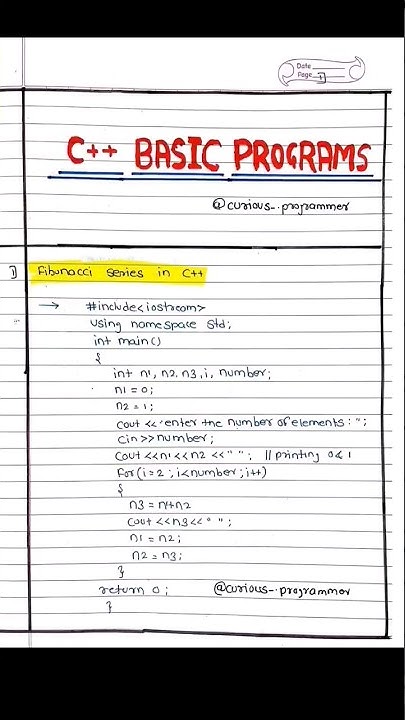 Date
Page 1
C++ BASIC PROGRAMS
@curious_.programmer
1) Fibonacci series in C++
→ #include<iostream>
using namespace std;
int main()
{
int n1, n2, n3, i, number;
n1 = 0;
n2 = 1;
cout << "enter the number of elements : ";
cin >> number;
cout << n1 << n2 << " "; // printing 0 & 1
for(i=2 ; i<number ; i++)
{
n3 = n1+n2
cout << n3 << " ";
n1 = n2;
n2 = n3;
}
return 0;
@curious_.programmer
}